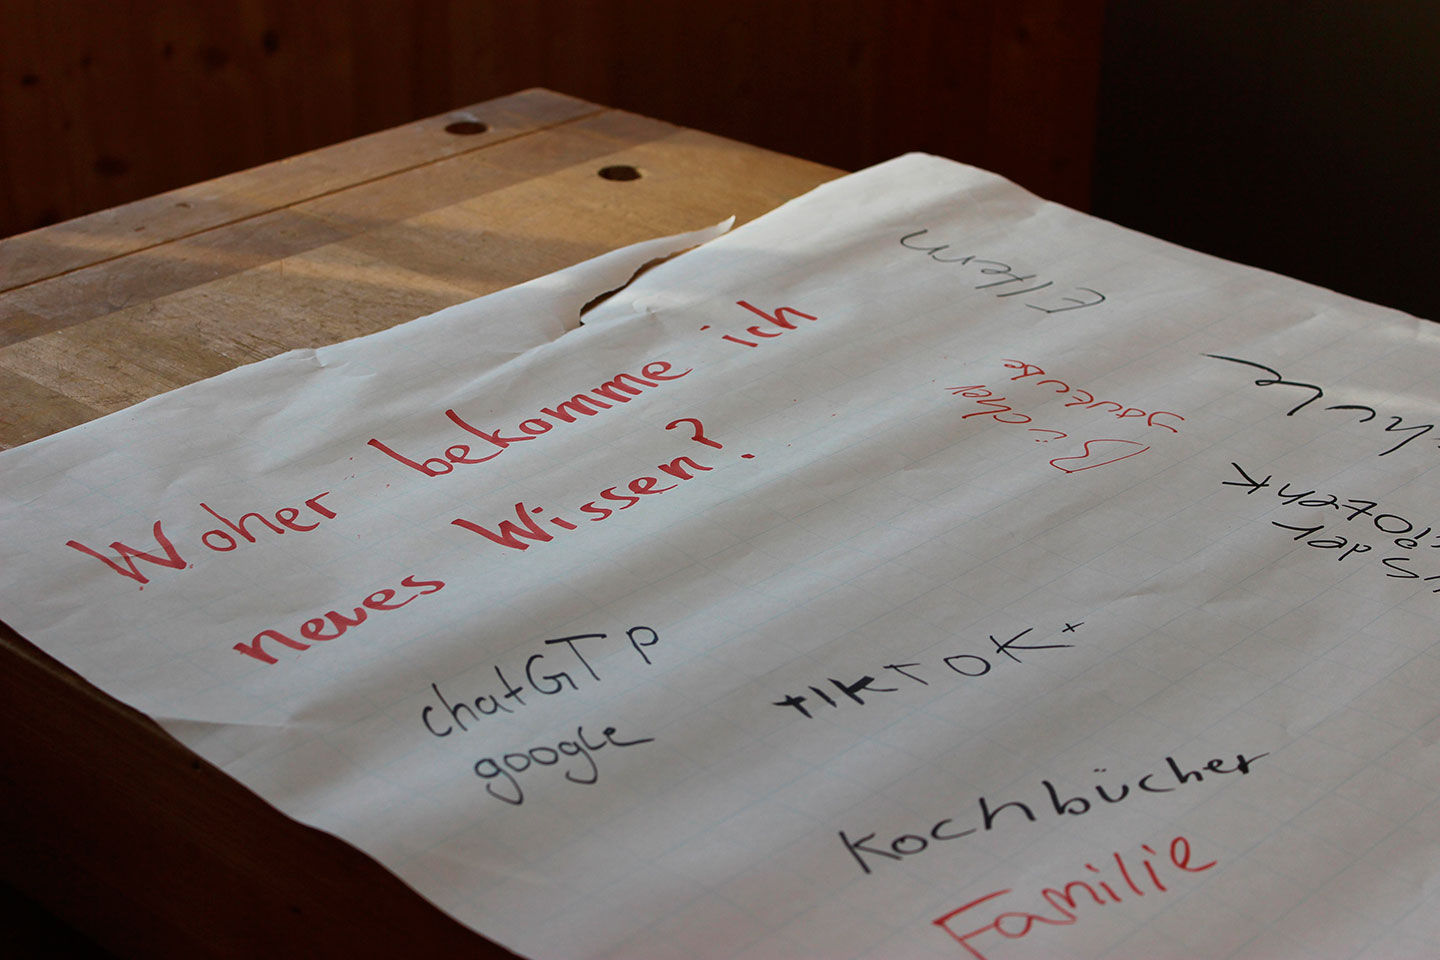 Woher bekomme ich
neues Wissen?
chatGTP
google
TIKTOK
Kochbücher
Familie
Eltern
youtube
Bücher